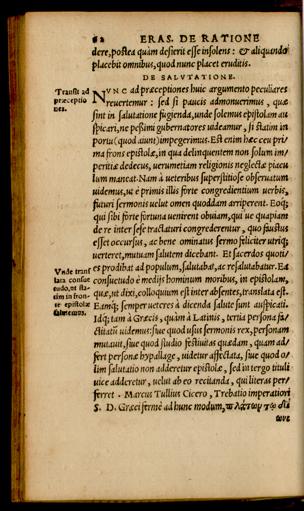 82 ERAS. DE RATIONE
dere, postea quàm desierit esse insolens: & aliquando
placebit omnibus, quod nunc placet eruditis.
DE SALVTATIONE.
Transit ad
præceptio
nes.
NVNC ad præceptiones huic argumento peculiares
reuertemur: sed si paucis admonuerimus, quæ
sint in salutatione fugienda, unde solemus epistolam au
spicari, ne pessimi gubernatores uideamur, si statim in
portu (quod aiunt) impegerimus. Est enim hæc ceu pri
ma frons epistolæ, in qua delinquentem non solum im-
peritiæ dedecus, uerumetiam religionis neglectæ piacu
lum maneat. Nam à ueteribus superstitiose obseruatum
uidemus, ut è primis illis forte congredientium uerbis,
futuri sermonis uelut omen quoddam arriperent. Eoq;
qui sibi forte fortuna uenirent obuiam, qui ue quapiam
de re inter sese tractaturi congrederentur, quo faustus
esset occursus, ac bene ominatus sermo feliciter utriq;
uerteret, mutuam salutem dicebant. Et sacerdos quoti-
es prodibat ad populum, salutabat, ac resalutabatur. Ea
Vnde tran
slata consue
tudo, ut sta
tim in fron-
te epistolæ
salutemus.
consuetudo è medijs hominum moribus, in epistolam,
quæ, ut dixi, colloquium est inter absentes, translata est.
Eamq; semper ueteres à dicenda salute sunt auspicati.
Idq; tam à Græcis, quàm à Latinis, tertia persona fa-
ctitatũ uidemus: siue quod usus sermonis rex, personam
mutauit, siue quod studio festiuitas quædam, quam ad-
fert personæ hypallage, uidetur affectata, siue quod o-
lim salutatio non adderetur epistolæ, sed in tergo tituli
uice adderetur, uelut ab eo recitanda, qui literas per-
ferret. Marcus Tullius Cicero, Trebatio imperatori
S. D. Græci fermè ad hunc modum, πλάτων τῷ διο